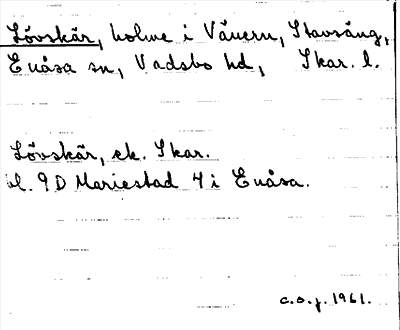 Lövskär, holme i Vänern, Stavsäng,
Enåsa sn, Vadsbo hd, Skar. l.
Lövskär, ek. Skar.
bl. 9D Mariestad 4 i Enåsa.
c.o.j. 1961.